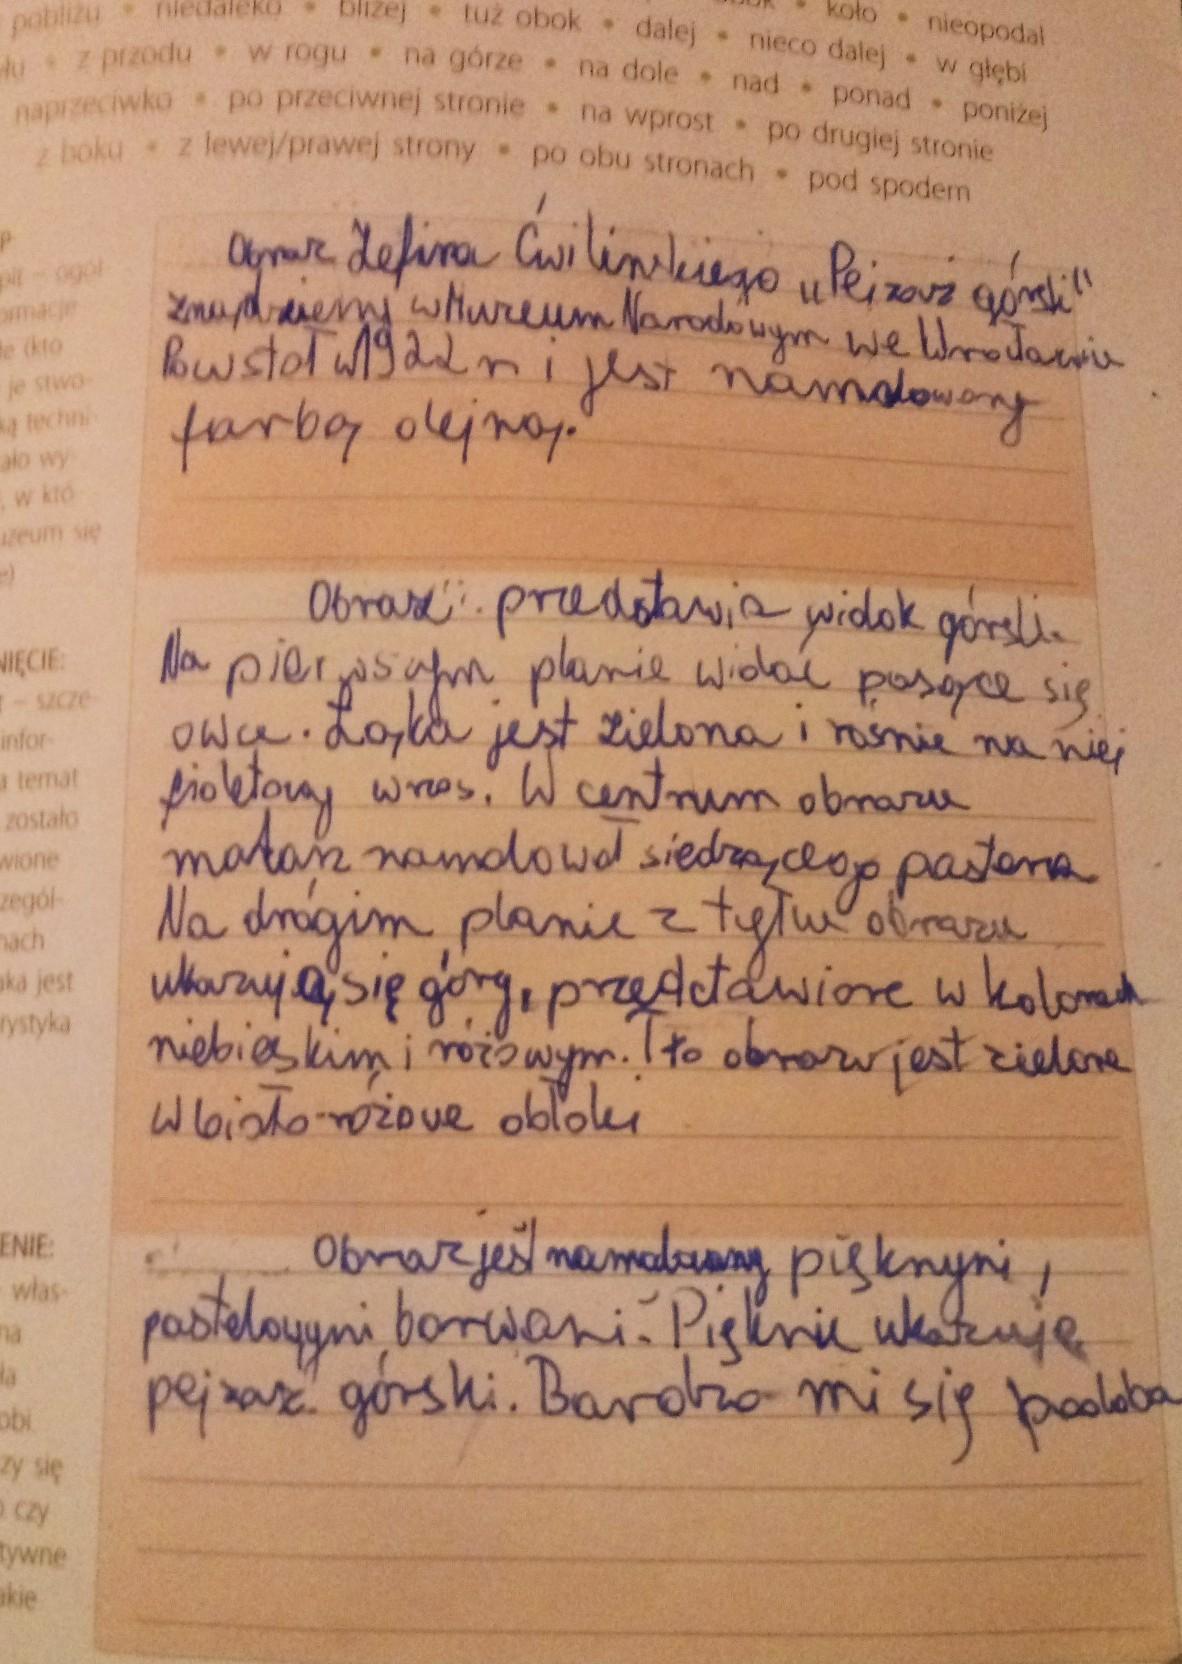 pobliżu • niedaleko • bliżej • tuż obok • dalej • nieco dalej • w głębi
koło • nieopodal
z przodu • w rogu • na górze • na dole • nad • ponad • poniżej
naprzeciwko • po przeciwnej stronie • na wprost • po drugiej stronie
z boku • z lewej/prawej strony • po obu stronach • pod spodem
Obraz Zefira Ćwilińskiego „Pejzaż górski"
znajdziemy w Muzeum Narodowym we Wrocławiu
Powstał w 1922 r i jest namalowany
farbą olejną.
Obraz przedstawia widok górski.
Na pierwszym planie widać pasące się
owce. Łąka jest zielona i rośnie na niej
fioletowy wrzos. W centrum obrazu
malarz namalował siedzącego pasterza
Na drógim planie z tyłu obrazu
ukazują się góry, przedstawione w kolorach
niebieskim i różowym. Tło obrazu jest zielone
w biało-różowe obłoki
Obraz jest namalowany pięknymi,
pastelowymi barwami. Pięknie ukazuje
pejzaż górski. Bardzo mi się podoba
NIĘCIE:
– szcze-
infor-
a temat
zostało
wione
zegól-
nach
aka jest
rystyka
ENIE:
włas-
na
ła
obi
zy się
czy
tywne
akie